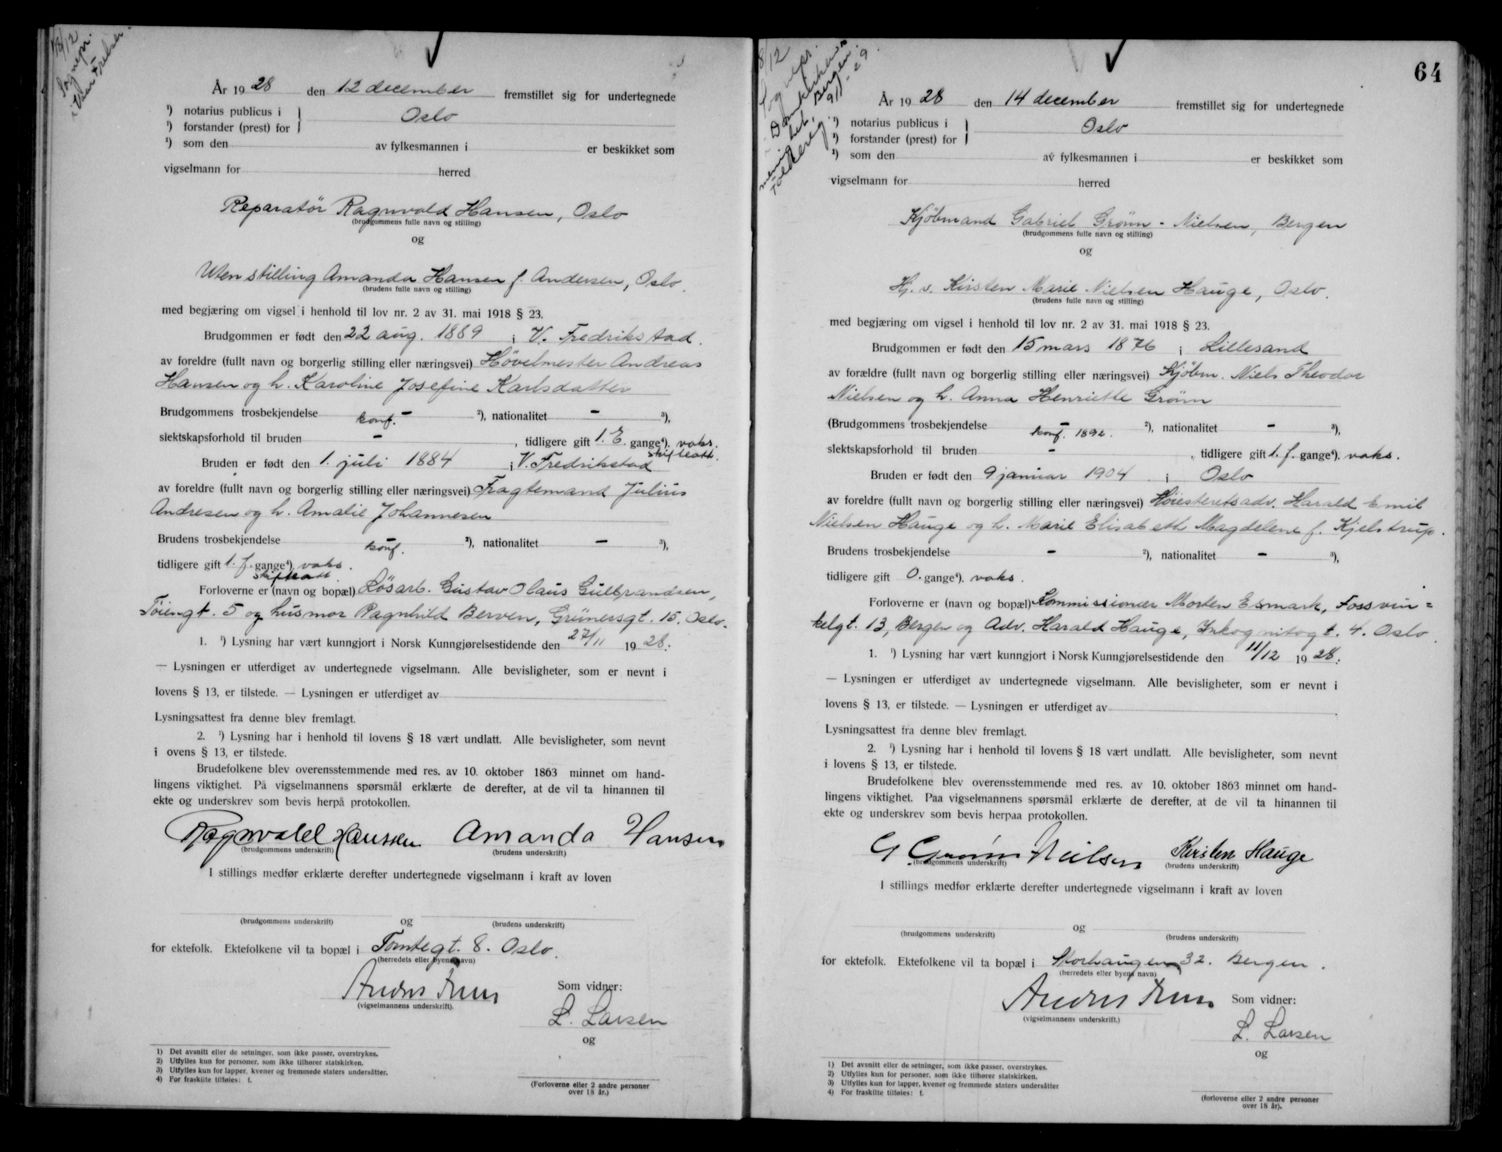 18/12
År 1928 den 12 december fremstillet sig for undertegnede
¹) notarius publicus i } Oslo
¹) forstander (prest) for
¹) som den av fylkesmannen i er beskikket som
vigselmann for herred
Reparatør Ragnvald Hansen, Oslo
(brudgommens fulle navn og stilling)
og
Uten stilling Amanda Hansen f. Andersen, Oslo.
(brudens fulle navn og stilling)
med begjæring om vigsel i henhold til lov nr. 2 av 31. mai 1918 § 23.
Brudgommen er født den 22 aug. 1889 i V. Fredrikstad.
av foreldre (fullt navn og borgerlig stilling eller næringsvei) Høvelmester Andreas
Hansen og h. Karoline Josefine Karlsdatter
Brudgommens trosbekjendelse konf. - ²), nationalitet - ³),
slektskapsforhold til bruden - , tidligere gift 1. E. gange⁴). vaks.
skifteatt.
Bruden er født den 1. juli 1884 i V. Fredrikstad
av foreldre (fullt navn og borgerlig stilling eller næringsvei) Fragtemand Julius
Andresen og h. Amalie Johannesen
Brudens trosbekjendelse konf. ²), nationalitet - ³),
tidligere gift 1. f. gange⁴). vaks.
skifteatt.
Forloverne er (navn og bopæl) Løsarb. Gustav Olaus Gulbrandsen,
Tøiengt. 5 og husmor Ragnhild Berven, Grünersgt. 15. Oslo.
1. ¹) Lysning har vært kunngjort i Norsk Kunngjørelsestidende den 27/11 1928.
— Lysningen er utferdiget av undertegnede vigselmann. Alle bevisligheter, som er nevnt i
lovens § 13, er tilstede. — Lysningen er utferdiget av
Lysningsattest fra denne blev fremlagt.
2. ¹) Lysning har i henhold til lovens § 18 vært undlatt. Alle bevisligheter, som nevnt
i ovens § 13, er tilstede.
Brudefolkene blev overensstemmende med res. av 10. oktober 1863 minnet om hand-
lingens viktighet. På vigselmannens spørsmål erklærte de derefter, at de vil ta hinannen til
ekte og underskrev som bevis herpå protokollen.
Ragnvald Hansen Amanda Hansen
(brudgommens underskrift) (brudens underskrift)
I stillings medfør erklærte derefter undertegnede vigselmann i kraft av loven
og
(brudgommens underskrift) (brudens underskrift)
for ektefolk. Ektefolkene vil ta bopæl i Tomtegt. 8. Oslo.
(herredets eller byens navn)
(vigselmannens underskrift).
Som vidner:
L. Larsen
og
(Forloverne eller 2 andre personer
over 18 år.)
1) Det avsnitt eller de setninger, som ikke passer, overstrykes.
2) Utfylles kun for personer, som ikke tilhører statskirken.
3) Utfylles kun for lapper, kvener og fremmede staters undersåtter.
4) For fraskilte tilføies: f.
64
8/12
År 1928 den 14 december fremstillet sig for undertegnede
¹) notarius publicus i } Oslo
¹) forstander (prest) for
¹) som den av fylkesmannen i er beskikket som
vigselmann for herred
Kjøbmand Gabriel Grønn-Nielsen, Bergen
(brudgommens fulle navn og stilling)
og
Hj. v. Kirsten Marie Nielsen Hauge, Oslo.
(brudens fulle navn og stilling)
med begjæring om vigsel i henhold til lov nr. 2 av 31. mai 1918 § 23.
Brudgommen er født den 15 mars 1876 i Lillesand
av forældre (fullt navn og borgerlig stilling eller næringsvei) Kjøbm. Niels Theodor
Nielsen og h. Anna Henriette Grønn
(Brudgommens trosbekjendelse konf. 1892. ²), nationalitet - ³),
slektskapsforhold til bruden - , tidligere gift 1. f. gange⁴). vaks.
Bruden er født den 9 januar 1904 i Oslo
av foreldre (fullt navn og borgerlig stilling eller næringsvei) Høiesteretsadv. Harald Emil
Nielsen Hauge og h. Marie Elisabeth Magdelene f. Kjelstrup.
Brudens trosbekjendelse - ²), nationalitet - ³),
tidligere gift 0. gange⁴). vaks.
Forloverne er (navn og bopæl) Kommissionær Morten Esmark, Fossvin=
kelgt. 13, Bergen og Adv. Harald Hauge, Inkognitogt. 4. Oslo.
1. ¹) Lysning har vært kunngjort i Norsk Kunngjørelsestidende den 11/12 1928.
— Lysningen er utferdiget av undertegnede vigselmann. Alle bevisligheter, som er nevnt i
lovens § 13, er tilstede. — Lysningen er utferdiget av
Lysningsattest fra denne blev fremlagt.
2. ¹) Lysning har i henhold til lovens § 18 vært undlatt. Alle bevisligheter, som nevnt
i lovens § 13, er tilstede.
Brudefolkene blev overensstemmende med res. av 10. oktober 1863 minnet om hand-
lingens viktighet. Paa vigselmannens spørsmål erklærte de derefter, at de vil ta hinannen til
ekte og underskrev som bevis herpaa protokollen.
G Grønn Nielsen Kirsten Hauge
(brudgommens underskrift) (brudens underskrift)
I stillings medfør erklærte derefter undertegnede vigselmann i kraft av loven
og
(brudgommens underskrift) (brudens underskrift)
for ektefolk. Ektefolkene vil ta bopæl i Storhaugen 32. Bergen.
(herredets eller byens navn)
(vigselmannens underskrift.)
Som vidner:
L. Larsen
og
(forloverne eller 2 andre personer
over 18 år).
1) Det avsnitt eller de setninger, som ikke passer, overstrykes.
2) Utfylles kun for personer, som ikke tilhører statskirken.
3) Utfylles kun for lapper, kvener og fremmede staters undersåtter
4) For fraskilte tilføies: f.